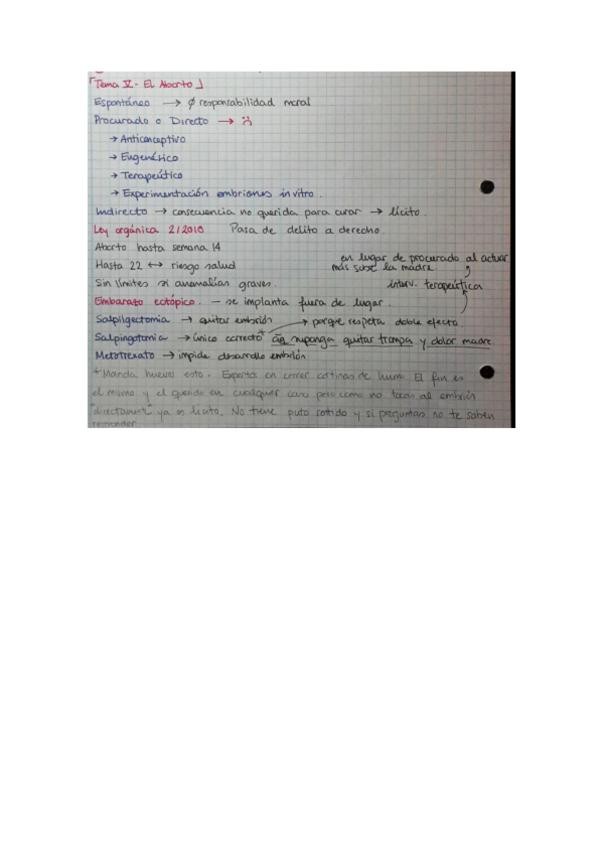 「Tema V - El Aborto」
Espontáneo → ∅ responsabilidad moral
Procurado o Directo → :(
→ Anticonceptivo
→ Eugenésico
→ Terapeútico
→ Experimentación embriones in vitro.
Indirecto → consecuencia no querida para curar → lícito.
Ley orgánica 2/2010 Pasa de delito a derecho.
Aborto hasta semana 14
Hasta 22 ↔ riesgo salud
en lugar de procurado al actuar
más sobre la madre
Sin límites si anomalías graves.
interv. terapeútica
Embarazo ectópico. - se implanta fuera de lugar.
Salpilgectomia → quitar embrión
→ porque respeta doble efecto
Salpingotomia → único correcto + aunq suponga quitar trompa y dolor madre.
Metotrexato → impide desarrollo embrión
+ Manda huevos esto. Expertos en correr cortinas de humo. El fin es
el mismo y el querido en cualquier caso pero como no tocas al embrión
"directament" ya es lícito. No tiene puto sentido y si preguntas no te saben
responder.